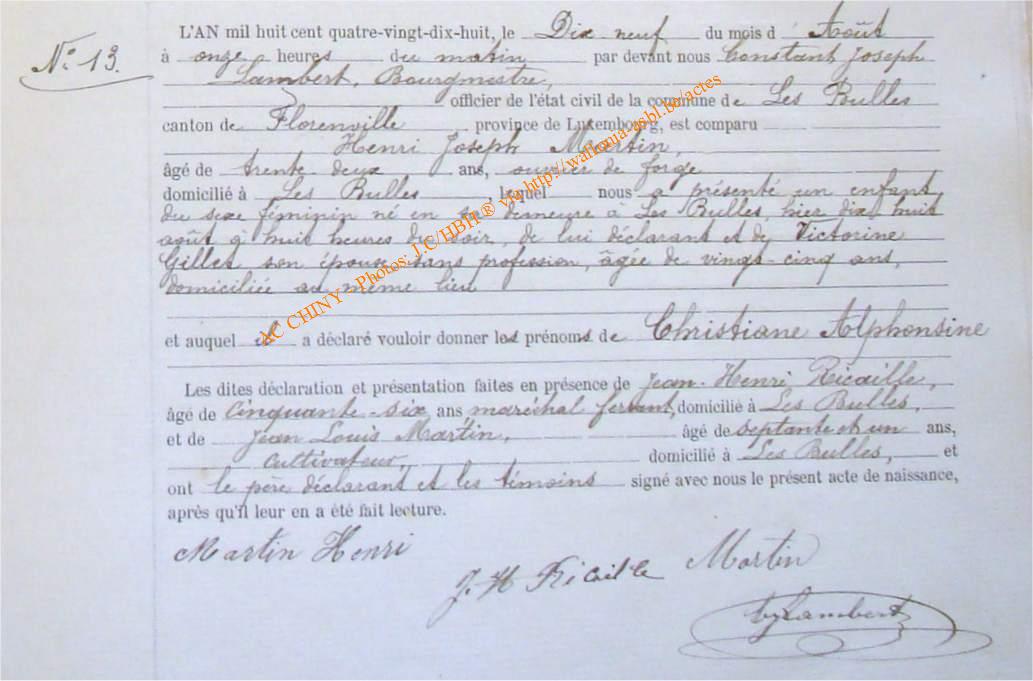 N° 13.
L'AN mil huit cent quatre-vingt-dix-huit, le Dix neuf du mois d' Août
à onze heures du matin par devant nous Constant Joseph
Lambert, Bourgmestre,
officier de l'état civil de la commune de Les Bulles
canton de Florenville province de Luxembourg, est comparu
Henri Joseph Martin,
âgé de trente deux ans, ouvrier de forge
domicilié à Les Bulles, lequel nous a présenté un enfant
du sexe féminin né en sa demeure à Les Bulles, hier dix huit
août à huit heures du soir, de lui déclarant et de Victorine
Gillet son épouse, sans profession, âgée de vingt-cinq ans,
domiciliée au même lieu
et auquel il a déclaré vouloir donner les prénoms de Christiane Alphonsine
Les dites déclaration et présentation faites en présence de Jean-Henri Ricaille,
âgé de cinquante-six ans maréchal ferrant, domicilié à Les Bulles,
et de Jean Louis Martin, âgé de septante et un ans,
cultivateur, domicilié à Les Bulles, et
ont le père déclarant et les témoins signé avec nous le présent acte de naissance,
après qu'il leur en a été fait lecture.
Martin Henri
J. H Ricaille
Martin
Lambert
AC CHINY - Photos: J.C/HBH ® via http://wallonia-asbl.be/actes